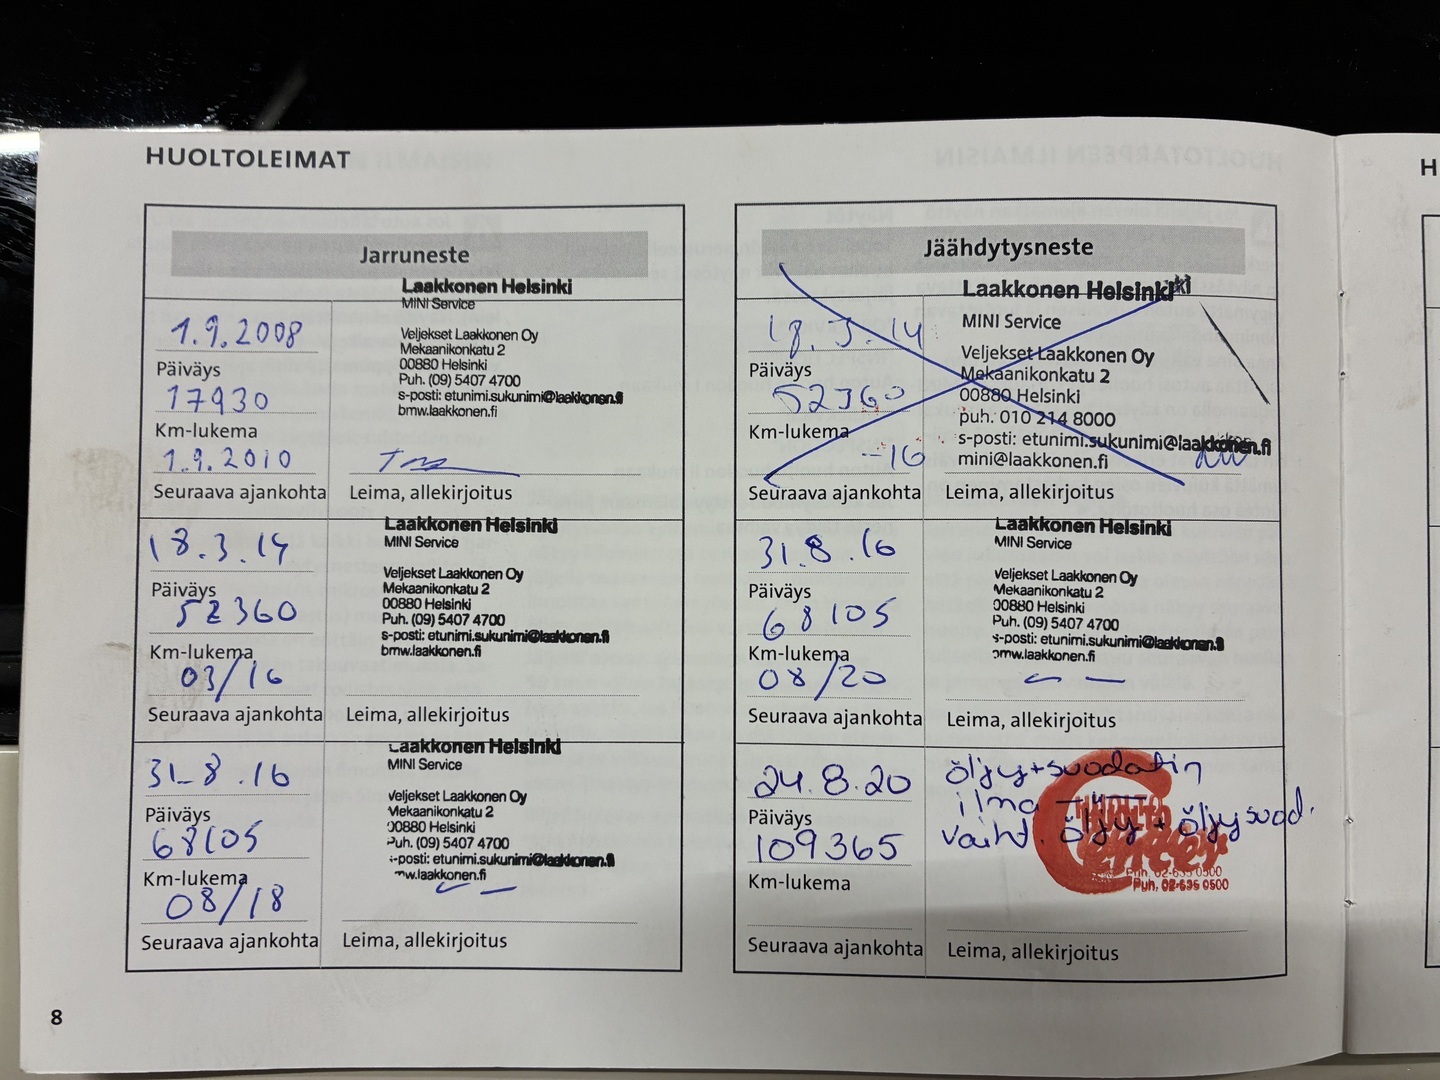 HUOLTOLEIMAT
Jarruneste
Laakkonen Helsinki
MINI Service
1.9.2008
Veljekset Laakkonen Oy
Mekaanikonkatu 2
00880 Helsinki
Puh. (09) 5407 4700
s-posti: etunimi.sukunimi@laakkonen.fi
bmw.laakkonen.fi
Päiväys
17930
Km-lukema
1.9.2010
Seuraava ajankohta
Leima, allekirjoitus
Laakkonen Helsinki
MINI Service
18.3.14
Veljekset Laakkonen Oy
Mekaanikonkatu 2
00880 Helsinki
Puh. (09) 5407 4700
s-posti: etunimi.sukunimi@laakkonen.fi
bmw.laakkonen.fi
Päiväys
52360
Km-lukema
03/16
Seuraava ajankohta
Leima, allekirjoitus
Laakkonen Helsinki
MINI Service
31.8.16
Veljekset Laakkonen Oy
Mekaanikonkatu 2
00880 Helsinki
Puh. (09) 5407 4700
s-posti: etunimi.sukunimi@laakkonen.fi
mw.laakkonen.fi
Päiväys
68105
Km-lukema
08/18
Seuraava ajankohta
Leima, allekirjoitus
Jäähdytysneste
Laakkonen Helsinki
MINI Service
18.3.14
Veljekset Laakkonen Oy
Mekaanikonkatu 2
00880 Helsinki
puh. 010 214 8000
s-posti: etunimi.sukunimi@laakkonen.fi
mini@laakkonen.fi
Päiväys
52360
Km-lukema
-16
Seuraava ajankohta
Leima, allekirjoitus
Laakkonen Helsinki
MINI Service
31.8.16
Veljekset Laakkonen Oy
Mekaanikonkatu 2
00880 Helsinki
Puh. (09) 5407 4700
s-posti: etunimi.sukunimi@laakkonen.fi
bmw.laakkonen.fi
Päiväys
68105
Km-lukema
08/20
Seuraava ajankohta
Leima, allekirjoitus
24.8.20
öljy+suodatin
ilma —"—
vaiht. öljy + öljysuod.
HUOLTO
Center
Puh. 02-635 0500
Puh. 02-635 0500
Päiväys
109365
Km-lukema
Seuraava ajankohta
Leima, allekirjoitus
8
H